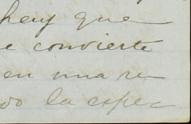 hay que
e convierte
en una re
do la espec